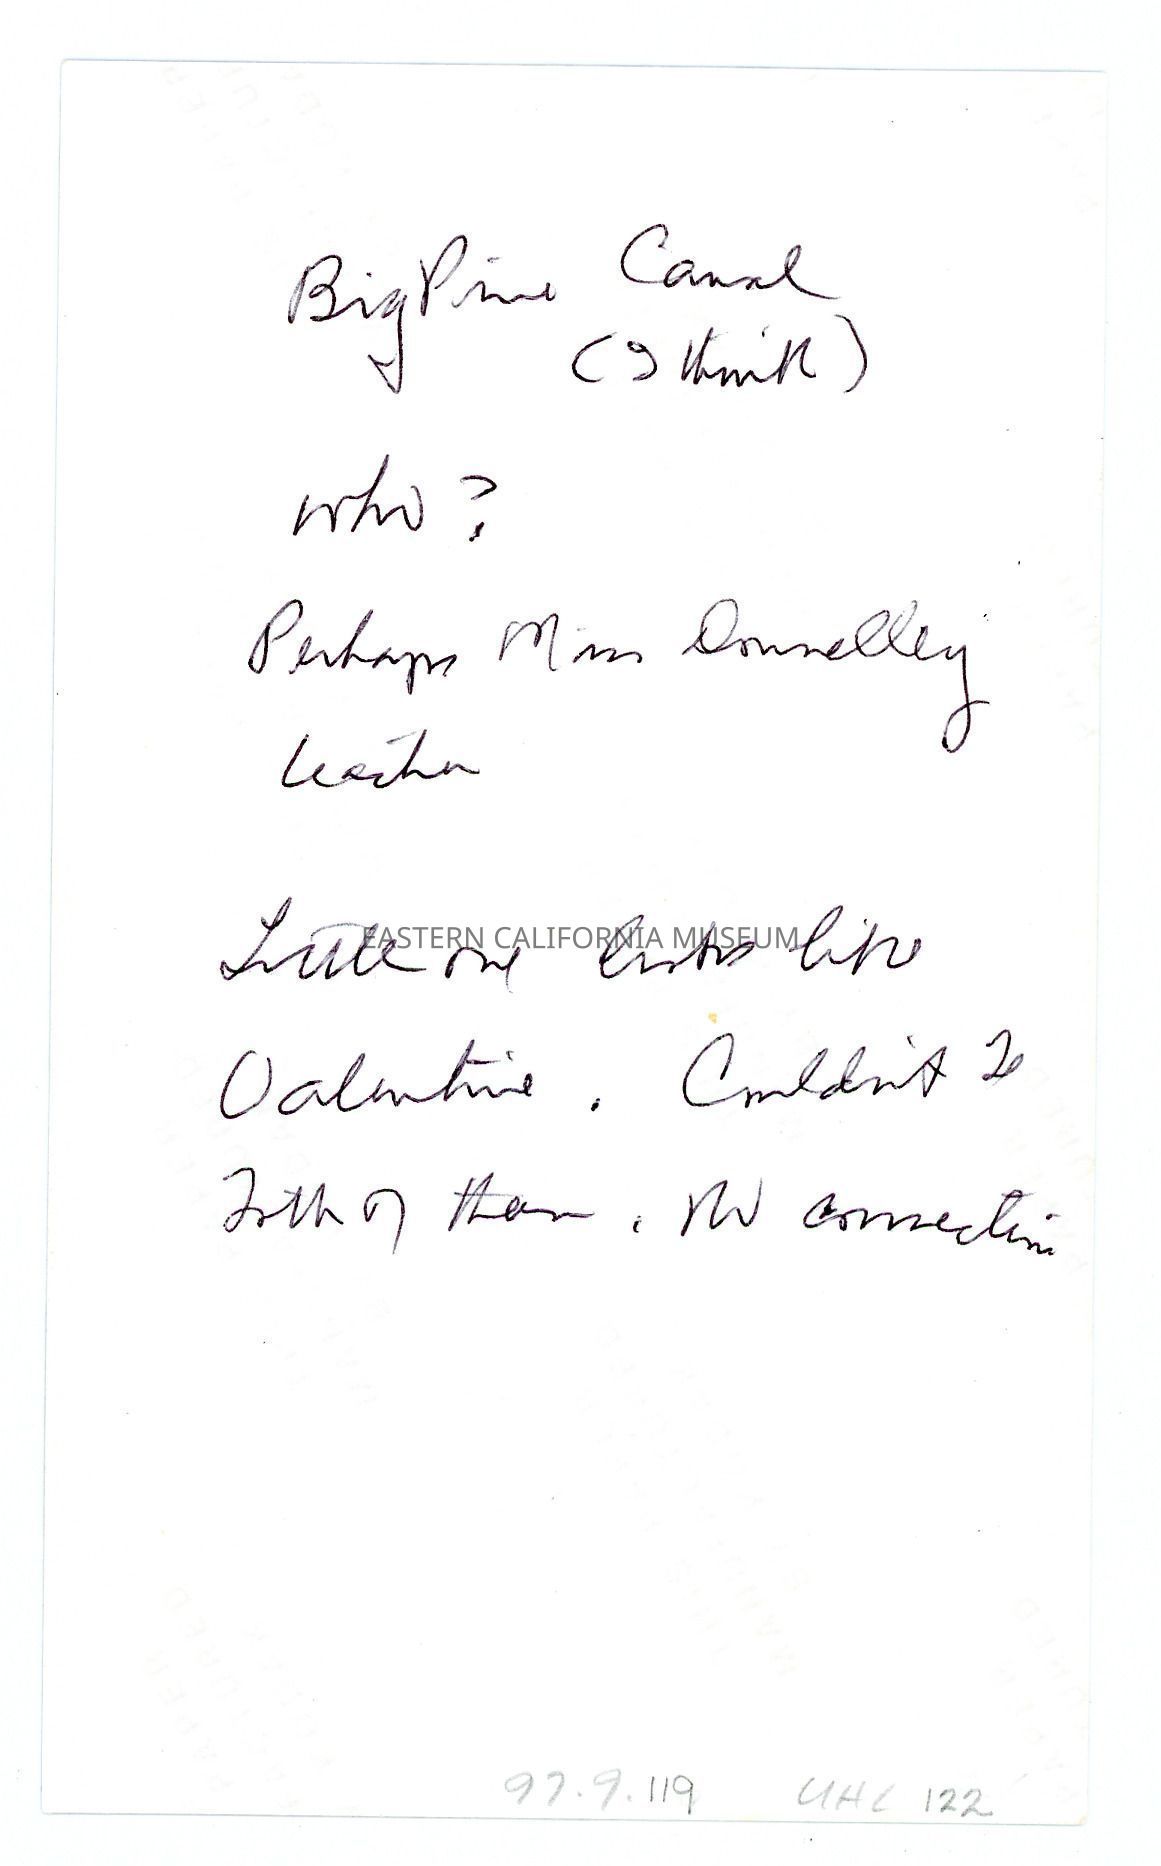 Big Pine Canal
(I think)
Who?
Perhaps Miss Donnelley
teacher
EASTERN CALIFORNIA MUSEUM
Little one looks like
Valentine. Couldn't be
both of them. No connection
97.9.119 UHC 122